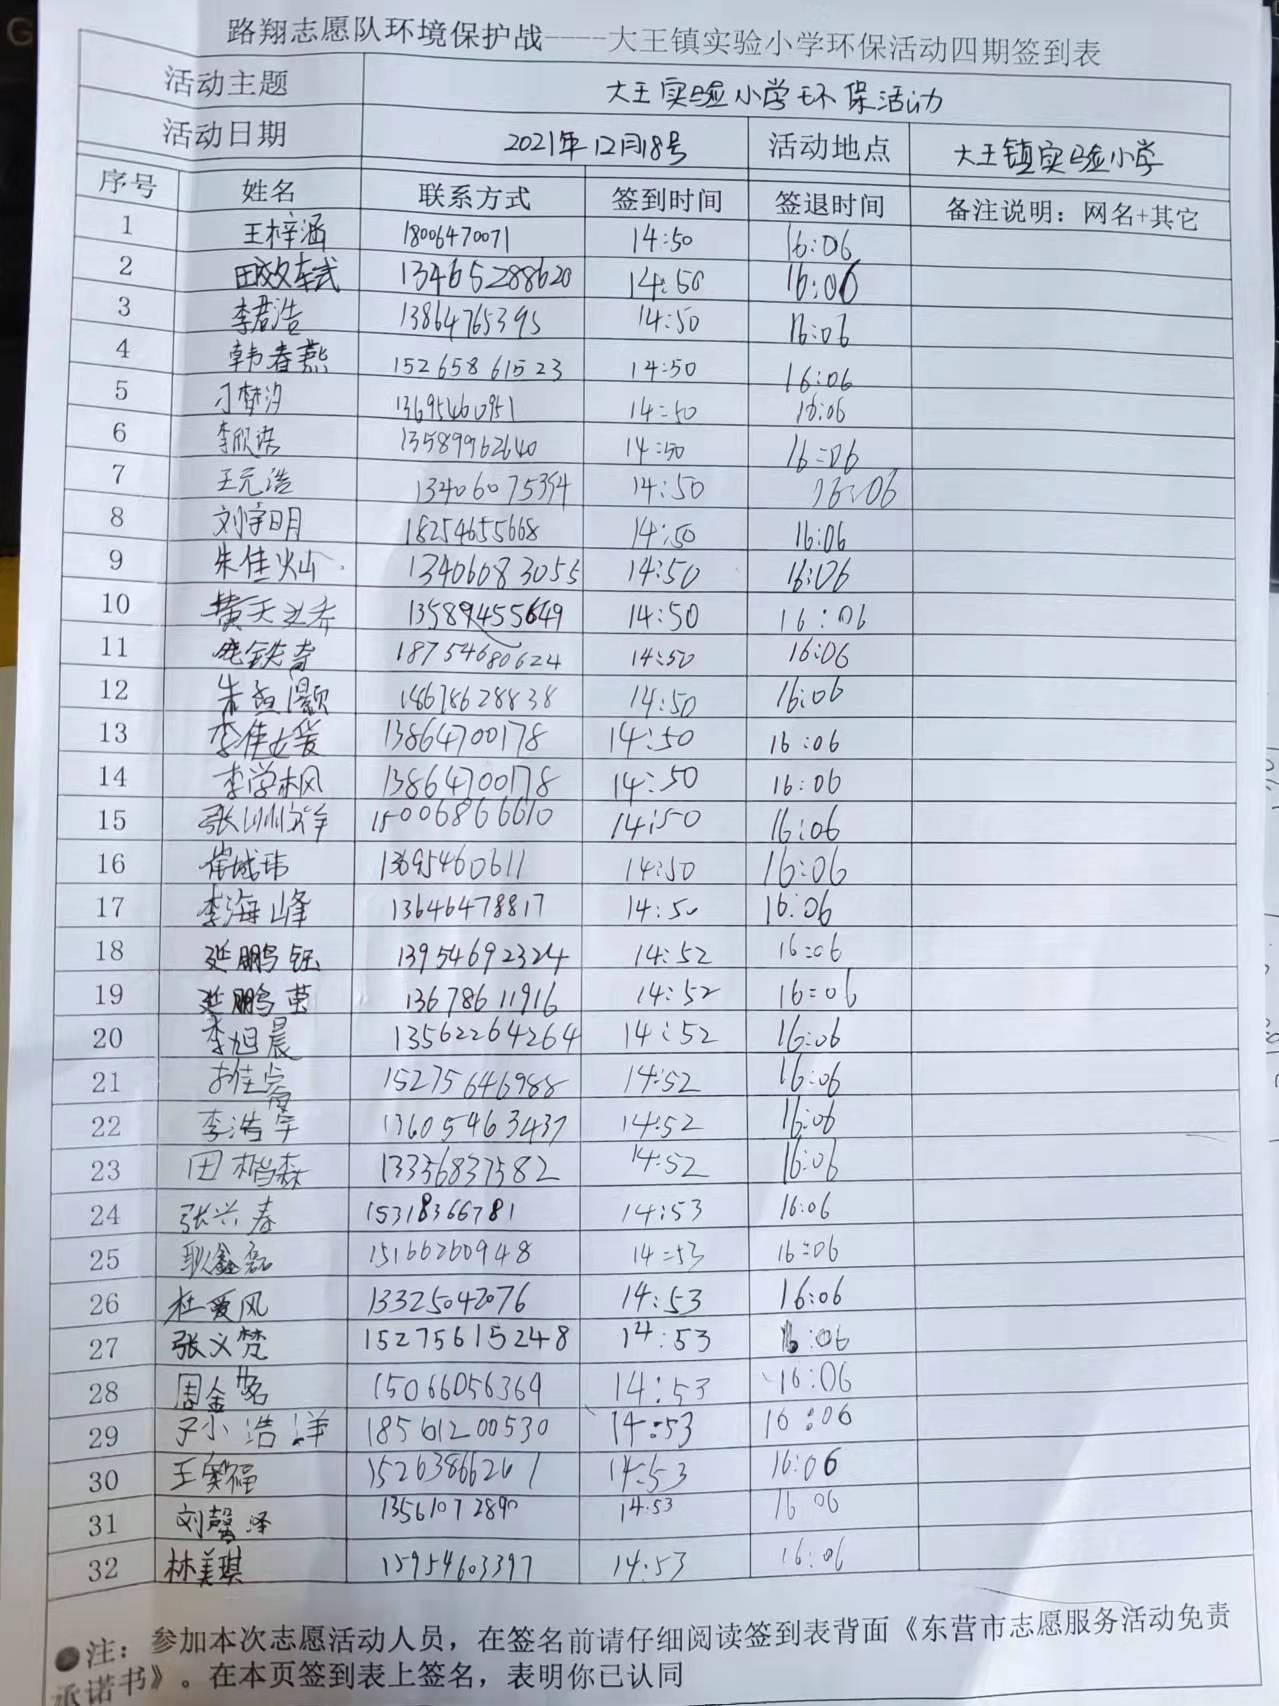 路翔志愿队环境保护战----大王镇实验小学环保活动四期签到表
活动主题 大王实验小学环保活动
活动日期 2021年12月18号 活动地点 大王镇实验小学
序号 姓名 联系方式 签到时间 签退时间 备注说明：网名+其它
1 王梓涵 18006470071 14:50 16:06
2 13465288620 14:50 16:06
3 李君浩 13864765395 14:50 16:06
4 韩春燕 15265861523 14:50 16:06
5 刁梦汐 13695460951 14:50 16:06
6 李欣诺 13589962640 14:50 16:06
7 王元浩 13406075394 14:50 16:06
8 刘宇明 18254655668 14:50 16:06
9 朱佳灿 13406083055 14:50 16:06
10 黄天之乔 13589455649 14:50 16:06
11 18754680624 14:50 16:06
12 朱孟灏 18678628838 14:50 16:06
13 李佳媛 13864700178 14:50 16:06
14 李学枫 13864700178 14:50 16:06
15 15006866610 14:50 16:06
16 崔城玮 13695460611 14:50 16:06
17 李海峰 13646478817 14:50 16:06
18 延鹏钰 13954692324 14:52 16:06
19 延鹏萤 13678611916 14:52 16:06
20 李旭晨 13562264264 14:52 16:06
21 15275646988 14:52 16:06
22 李浩宇 13605463437 14:52 16:06
23 田楷森 13356837582 14:52 16:06
24 张兴春 15318366781 14:53 16:06
25 耿鑫磊 15166260948 14:53 16:06
26 杜爱风 13325042076 14:53 16:06
27 张义梵 15275615248 14:53 16:06
28 周金铭 15066056369 14:53 16:06
29 18561200530 14:53 16:06
30 15263866261 14:53 16:06
31 刘馨泽 13561072890 14:53 16 06
32 林美琪 15954603397 14:53 16:06
●注：参加本次志愿活动人员，在签名前请仔细阅读签到表背面《东营市志愿服务活动免责
承诺书》。在本页签到表上签名，表明你已认同